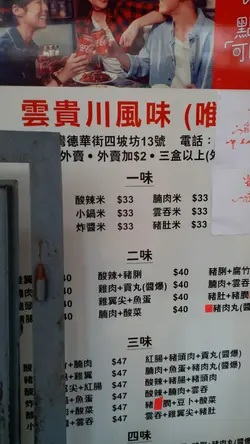 點
可
雲貴川風味 (唯
德華街四坡坊13號 電話:
外賣•外賣加$2•三盒以上(外
一味
酸辣米 $33 腩肉米 $33
小鍋米 $33 雲吞米 $33
炸醬米 $33 豬肚米 $33
二味
$40 酸辣+豬脷 $40 豬脷+腐竹
翼 $40 雞肉+貢丸(醬爆) $40 腩肉+雲吞
$40 雞翼尖+魚蛋 $40 豬肚+豬膶
$40 腩肉+酸菜 $40 豬肉丸(醬爆)
三味
腩肉 $47 紅腸+豬頭肉+貢丸(醬爆)
雞翼 $47 腩肉+魚蛋+豬肉丸(醬爆)
尖+紅腸 $47 酸辣+豬脷+豬頭肉
魚蛋 $47 酸辣+腩肉+雲吞
酸菜 $47 豬膶+豆卜+酸菜
豬肚 $47 雲吞+雞翼尖+豬肚
四味